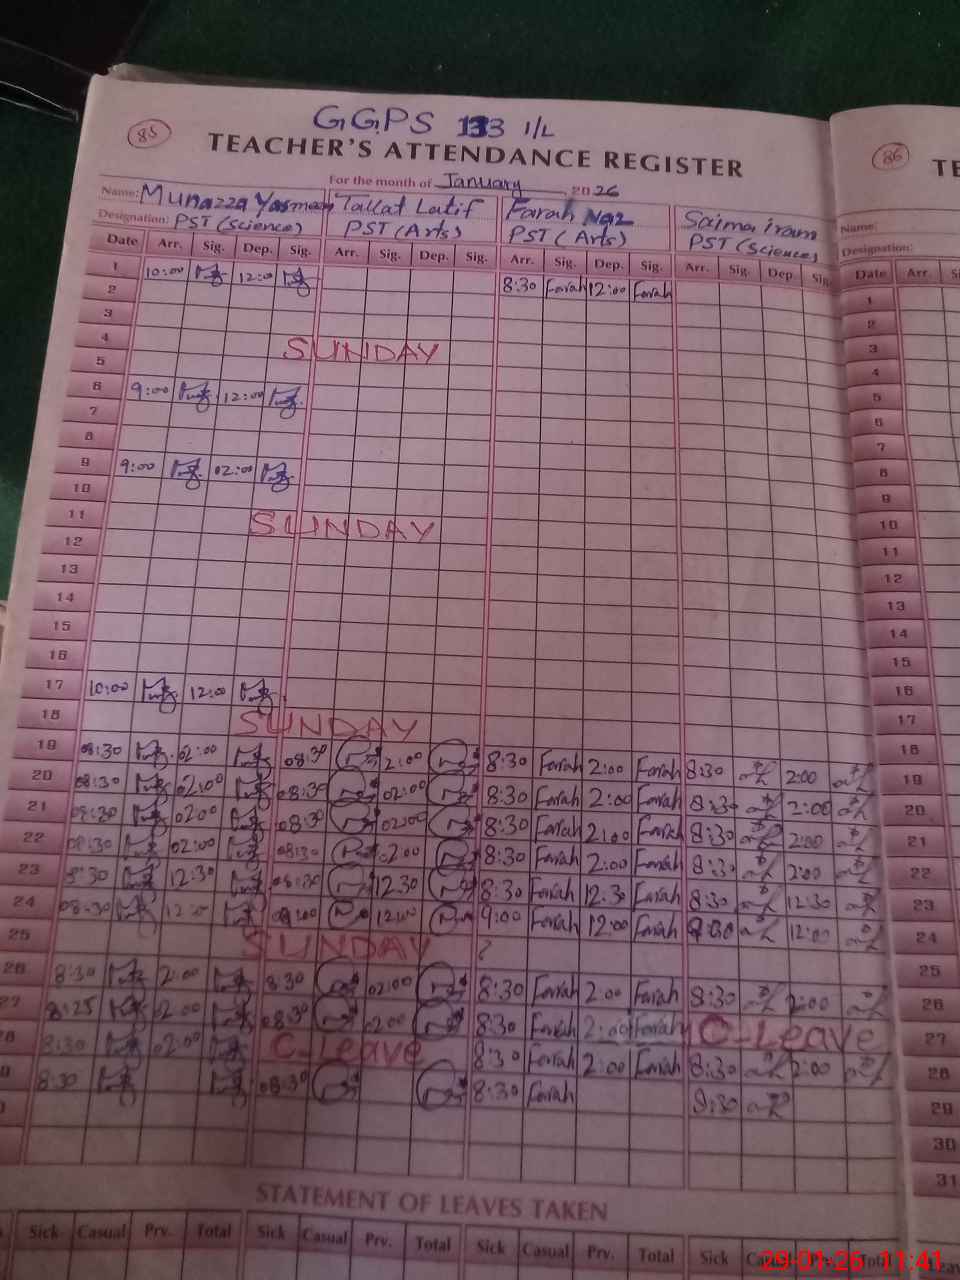 85
GGPS 133 1/L
TEACHER'S ATTENDANCE REGISTER
For the month of January 2026
Name: Munazza Yasmeen Tallat Latif Farah Naz Saima iram
Designation: PST (Science) PST (Arts) PST (Arts) PST (Science)
Date Arr. Sig. Dep. Sig. Arr. Sig. Dep. Sig. Arr. Sig. Dep. Sig. Arr. Sig. Dep. Sig.
1 10:00 12:00 8:30 Farah 12:00 Farah
2
3
4 SUNDAY
5
6 9:00 12:00
7
8
9 9:00 02:00
10
11 SUNDAY
12
13
14
15
16
17 10:00 12:00
18 SUNDAY
19 08:30 02:00 08:30 2:00 8:30 Farah 2:00 Farah 8:30 2:00
20 08:30 02:00 08:30 02:00 8:30 Farah 2:00 Farah 8:30 2:00
21 08:30 02:00 08:30 02:00 8:30 Farah 2:00 Farah 8:30 2:00
22 08:30 02:00 08:30 2:00 8:30 Farah 2:00 Farah 8:30 2:00
23 12:30 08:30 12:30 8:30 Farah 12:30 Farah 8:30 12:30
24 08:30 9:00 Farah 12:00 Farah 12:00
25 SUNDAY
26 8:30 2:00 8:30 02:00 8:30 Farah 2:00 Farah 8:30 2:00
27 8:25 2:00 08:30 2:00 8:30 Farah 2:00 Farah C-Leave
8:30 02:00 C-Leave 8:30 Farah 2:00 Farah 8:30 2:00
8:30 08:30 8:30 Farah
STATEMENT OF LEAVES TAKEN
Sick Casual Prv. Total Sick Casual Prv. Total Sick Casual Prv. Total Sick
86
TE
Name:
Designation:
Date Arr.
1
2
3
4
5
6
7
8
9
10
11
12
13
14
15
16
17
18
19
20
21
22
23
24
25
26
27
28
29
30
31
29-01-26 11:41